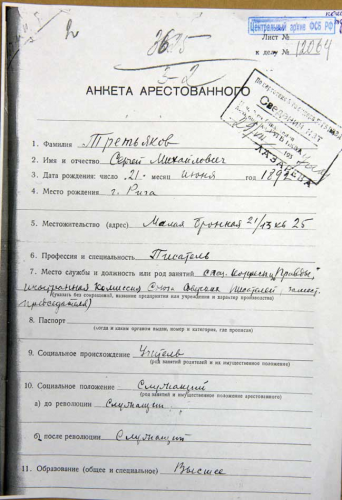 Центральный архив ФСБ РФ
Лист №
к делу № 12064
3-2
АНКЕТА АРЕСТОВАННОГО
1. Фамилия Третьяков
2. Имя и отчество Сергей Михайлович
3. Дата рождения: число 21 месяц июня год 1892
4. Место рождения г. Рига
5. Местожительство (адрес) Малая Бронная 21/13 кв 25
6. Профессия и специальность Писатель
7. Место службы и должность или род занятий спец. корреспонд. „Правды",
иностранная комиссия Союза Советских писателей, замест.
(Указать без сокращений, название предприятия или учреждения и характер производства)
председателя)
8. Паспорт
(когда и каким органом выдан, номер и категория, где прописан)
9. Социальное происхождение Учитель
(род занятий родителей и их имущественное положение)
10. Социальное положение Служащий
(род занятий и имущественное положение арестованного)
а) до революции Служащий
б) после революции Служащий
11. Образование (общее и специальное) Высшее